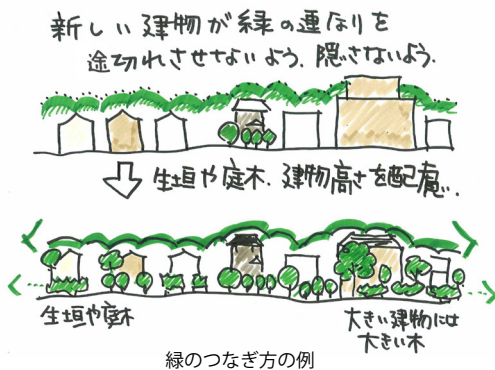 新しい建物が緑の連なりを
途切れさせないよう、隠さないよう。
生垣や庭木、建物高さを配慮。
生垣や庭木
大きい建物には
大きい木
緑のつなぎ方の例